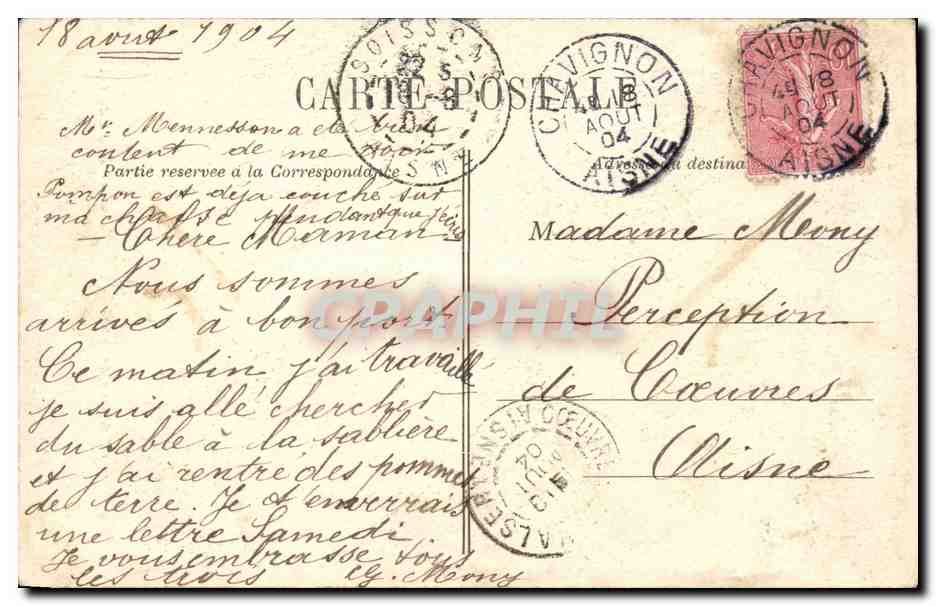 18 aout 1904
CARTE POSTALE
Mr Mennesson a ete bien
content de me voir
Partie reservee à la Correspondance
Pompon est déja couché sur
ma chaise pendant que j'écris
- Chère Maman
Nous sommes
arrivés à bon port
Ce matin j'ai travaillé
je suis allé chercher
du sable à la sablière
et j'ai rentré des pommes
de terre. Je t'enverrais
une lettre Samedi
Je vous embrasse tous
les trois G. Mony
SOISSONS
AISNE
04
CHAVIGNON
18
AOUT
04
AISNE
CHAVIGNON
18
AOUT
04
AISNE
Adresse du destina
Madame Mony
Perception
de Cœuvres
Aisne
CŒUVRES
VALSERY
AISNE
19
AOUT
04
CRAPHIL